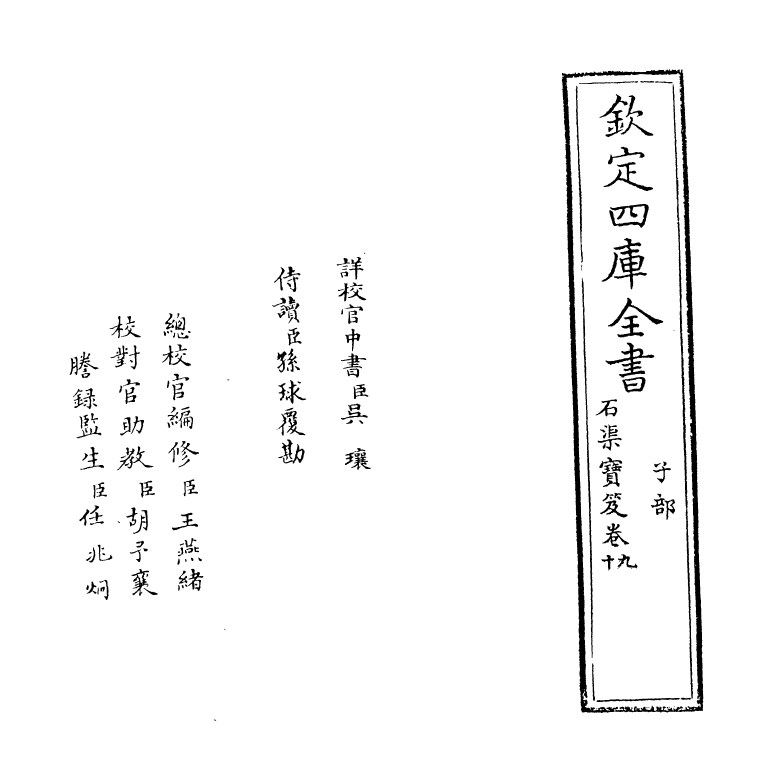 欽定四庫全書
子部
石渠寶笈卷十九
詳校官中書臣吳瓖
侍讀臣孫球覆勘
總校官編修臣王燕緒
校對官助教臣胡予襄
謄録監生臣任兆炯